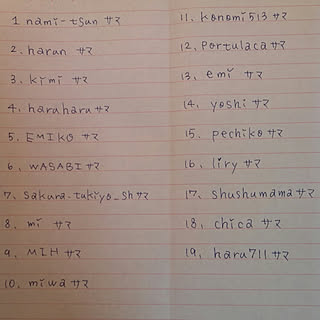 1 nami-tsun サマ
2. harun サマ
3. kimi サマ
4. haruharu サマ
5. EMIKO サマ
6. WASABI サマ
7. Sakura-tukiyo_sh サマ
8. mi サマ
9. MIH サマ
10. miwa サマ
11. konomi513 サマ
12. portulaca サマ
13. emi サマ
14. yoshi サマ
15. pechiko サマ
16. liry サマ
17. shushumama サマ
18. chica サマ
19. haru711 サマ